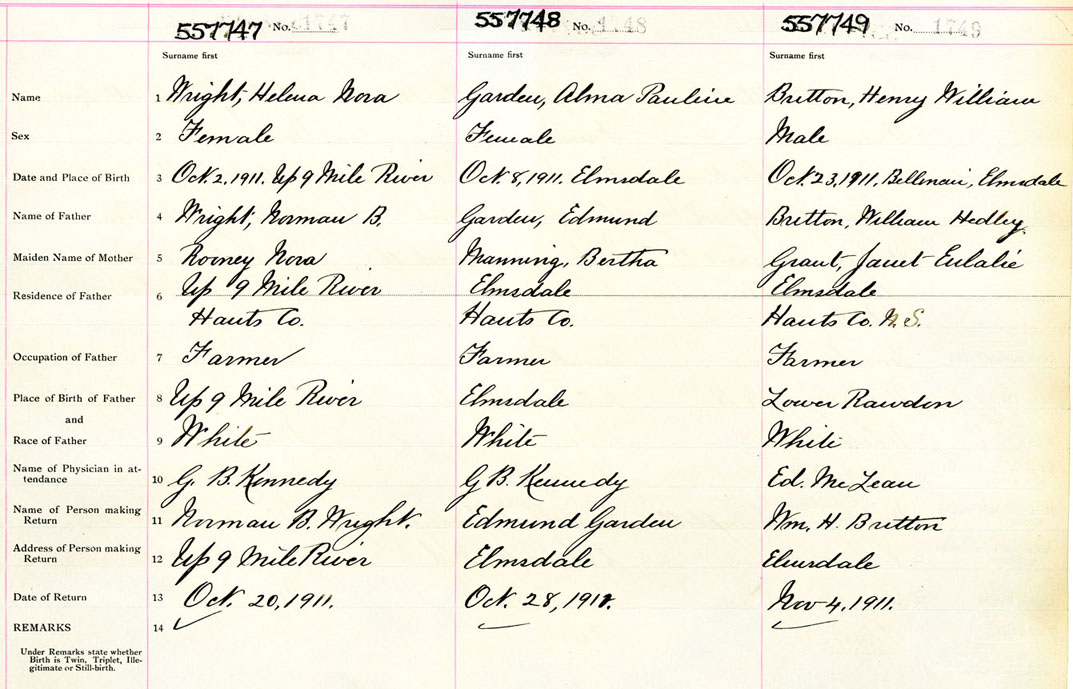 557747 No. 1747 557748 No. 1748 557749 No. 1749
Surname first Surname first Surname first
Name 1 Wright, Helena Nora Garden, Alma Pauline Britton, Henry William
Sex 2 Female Female Male
Date and Place of Birth 3 Oct. 2, 1911. Up 9 Mile River Oct. 8, 1911. Elmsdale Oct. 23, 1911, Elmsdale
Name of Father 4 Wright, Norman B. Garden, Edmund Britton, William Hedley
Maiden Name of Mother 5 Rooney Nora Manning, Bertha Grant, Janet Eulalie
Residence of Father 6 Up 9 Mile River Elmsdale Elmsdale
Hants Co. Hants Co. Hants Co. N.S.
Occupation of Father 7 Farmer Farmer Farmer
Place of Birth of Father 8 Up 9 Mile River Elmsdale Lower Rawdon
and
Race of Father 9 White White White
Name of Physician in at-
tendance 10 G. B. Kennedy G B. Kennedy Ed. McLean
Name of Person making
Return 11 Norman B. Wright. Edmund Garden Wm. H. Britton
Address of Person making
Return 12 Up 9 Mile River Elmsdale Elmsdale
Date of Return 13 Oct. 20, 1911. Oct. 28, 1911. Nov 4, 1911.
REMARKS 14
Under Remarks state whether
Birth is Twin, Triplet, Ille-
gitimate or Still-birth.